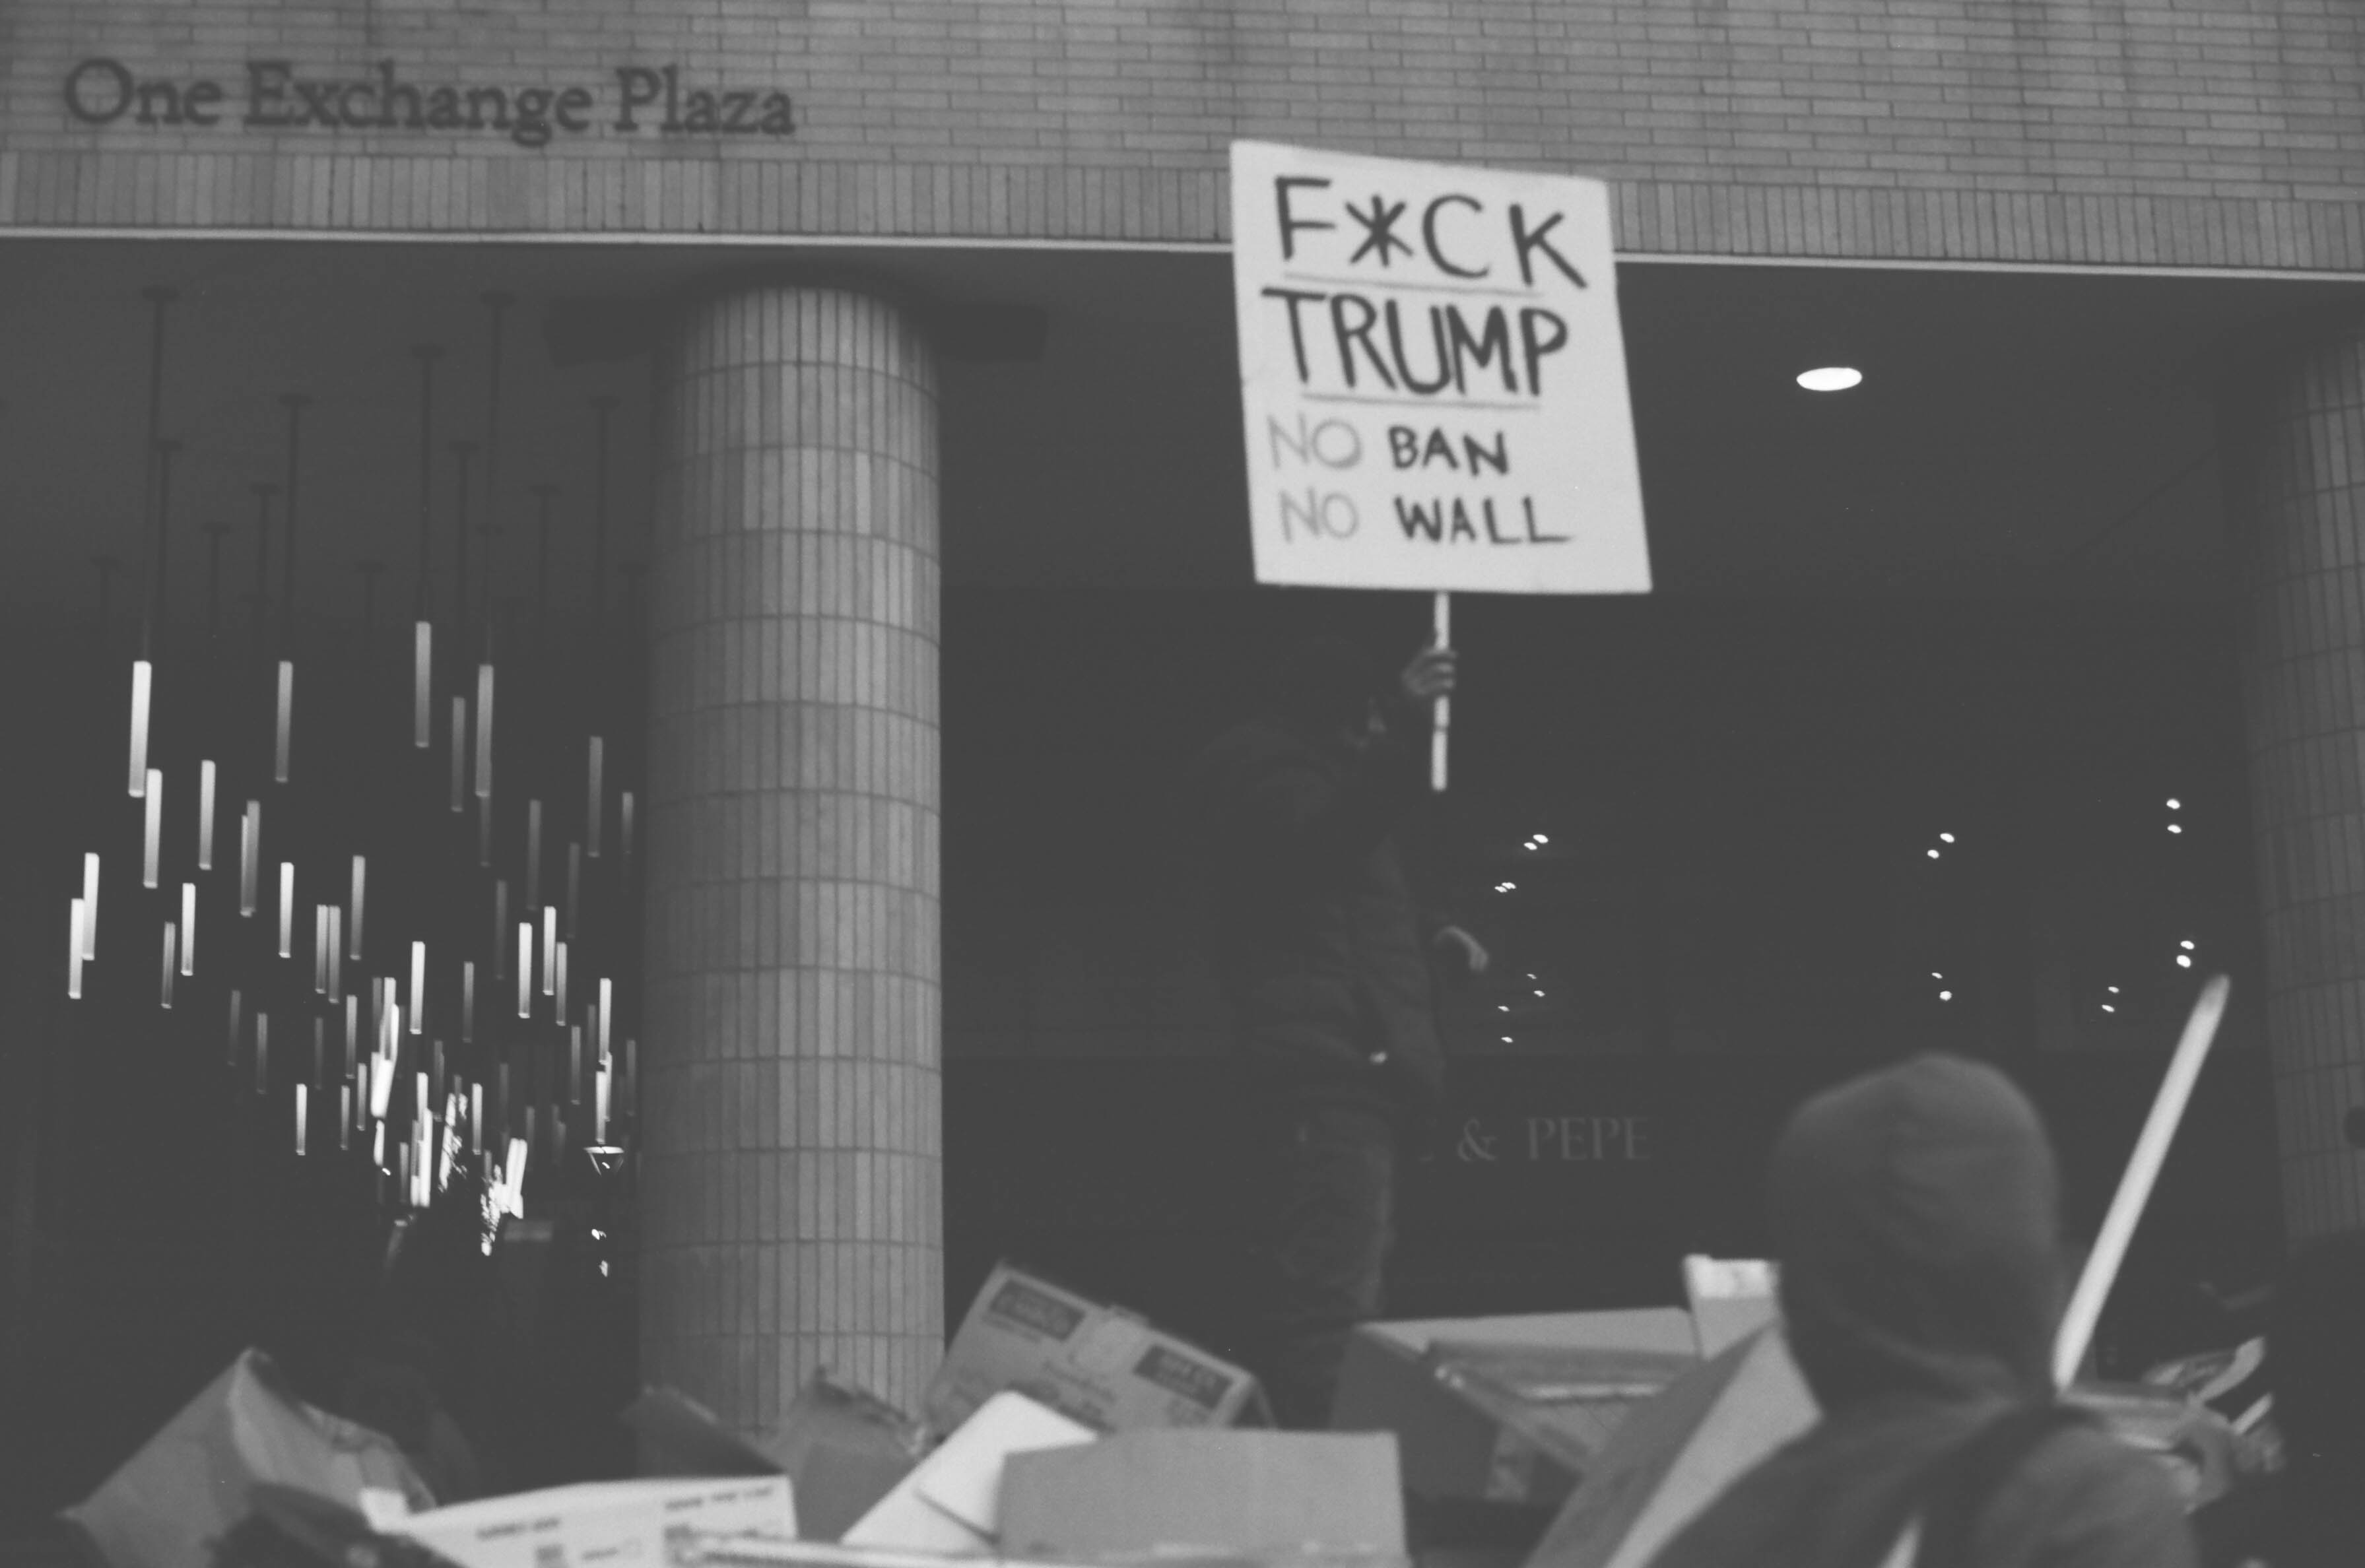 One Exchange Plaza
F*CK
TRUMP
NO BAN
NO WALL
& PEPE